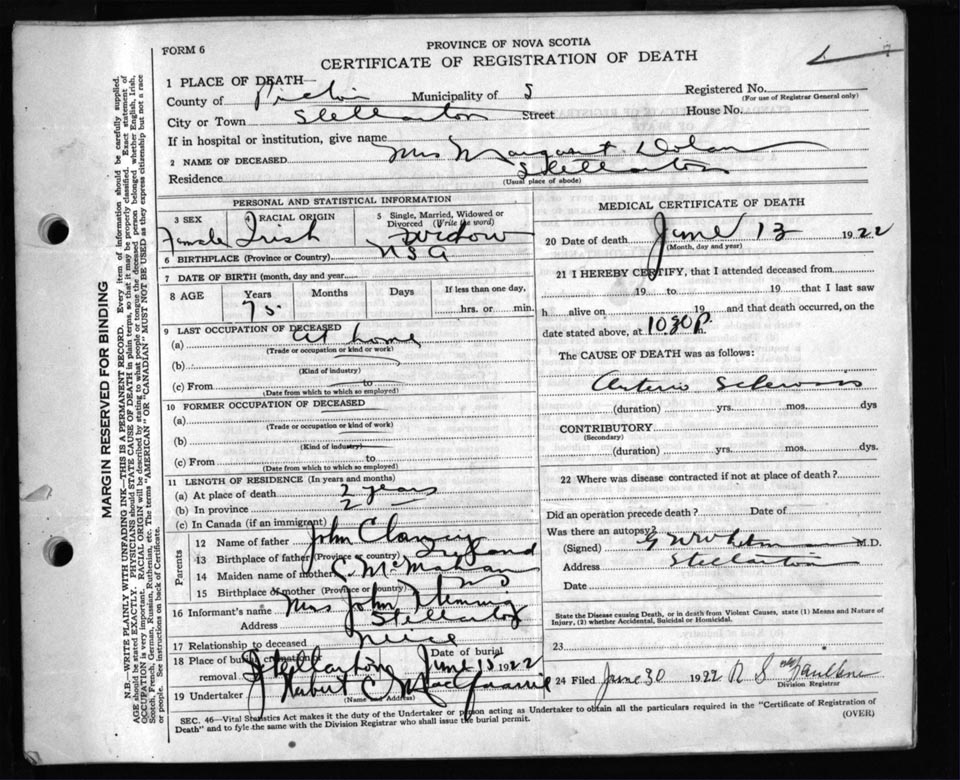 FORM 6
PROVINCE OF NOVA SCOTIA
CERTIFICATE OF REGISTRATION OF DEATH
1 PLACE OF DEATH—
County of Pictou Municipality of S Registered No.
(For use of Registrar General only)
City or Town Stellarton Street House No.
If in hospital or institution, give name
2 NAME OF DECEASED Mrs Margaret Dolan
Residence Stellarton
(Usual place of abode)
PERSONAL AND STATISTICAL INFORMATION
3 SEX 4 RACIAL ORIGIN 5 Single, Married, Widowed or Divorced (Write the word)
Female Irish Widow
6 BIRTHPLACE (Province or Country)
7 DATE OF BIRTH (month, day and year)
8 AGE Years Months Days If less than one day,
75 hrs. or min.
9 LAST OCCUPATION OF DECEASED
(a) at home
(Trade or occupation or kind or work)
(b)
(Kind of industry)
(c) From to
(Date from which to which so employed)
10 FORMER OCCUPATION OF DECEASED
(a)
(Trade or occupation or kind of work)
(b)
(Kind of industry)
(c) From to
(Date from which to which so employed)
11 LENGTH OF RESIDENCE (In years and months)
(a) At place of death 2 years
(b) In province 2
(c) In Canada (if an immigrant)
Parents
12 Name of father John Clancy
13 Birthplace of father (Province or country) Ireland
14 Maiden name of mother C. McMahan
15 Birthplace of mother (Province or country)
16 Informant's name Mrs John Flemming
Address Stellarton
17 Relationship to deceased niece
18 Place of burial, cremation or removal Stellarton Date of burial June 15 1922
19 Undertaker
(Name and Address)
MEDICAL CERTIFICATE OF DEATH
20 Date of death June 13 1922
(Month, day and year)
21 I HEREBY CERTIFY, that I attended deceased from
19 to 19 that I last saw
h alive on 19 and that death occurred, on
date stated above, at 1030 P m.
The CAUSE OF DEATH was as follows:
Arterio Sclerosis
(duration) yrs. mos. dys
CONTRIBUTORY
(Secondary)
(duration) yrs. mos. dys.
22 Where was disease contracted if not at place of death?
Did an operation precede death? Date of
Was there an autopsy?
(Signed) M.D.
Address Stellarton
Date
State the Disease causing Death, or in death from Violent Causes, state (1) Means and Nature of
Injury, (2) whether Accidental, Suicidal or Homicidal.
23
24 Filed June 30 1922
Division Registrar
SEC. 46—Vital Statistics Act makes it the duty of the Undertaker or person acting as Undertaker to obtain all the particulars required in the "Certificate of Registration of
Death" and to fyle the same with the Division Registrar who shall issue the burial permit. (OVER)
MARGIN RESERVED FOR BINDING
N.B.—WRITE PLAINLY WITH UNFADING INK—THIS IS A PERMANENT RECORD. Every item of information should be carefully supplied.
AGE should be stated EXACTLY. PHYSICIANS should STATE CAUSE OF DEATH in plain terms, so that it may be properly classified. Exact statement of
OCCUPATION is very important. RACIAL ORIGIN will be described by stating to what people or tongue the deceased person belonged whether English, Irish,
Scotch, French, German, Russian, Ruthenian, etc. The terms "AMERICAN" OR "CANADIAN" MUST NOT BE USED as they express citizenship but not a race
or people. See instructions on back of Certificate.